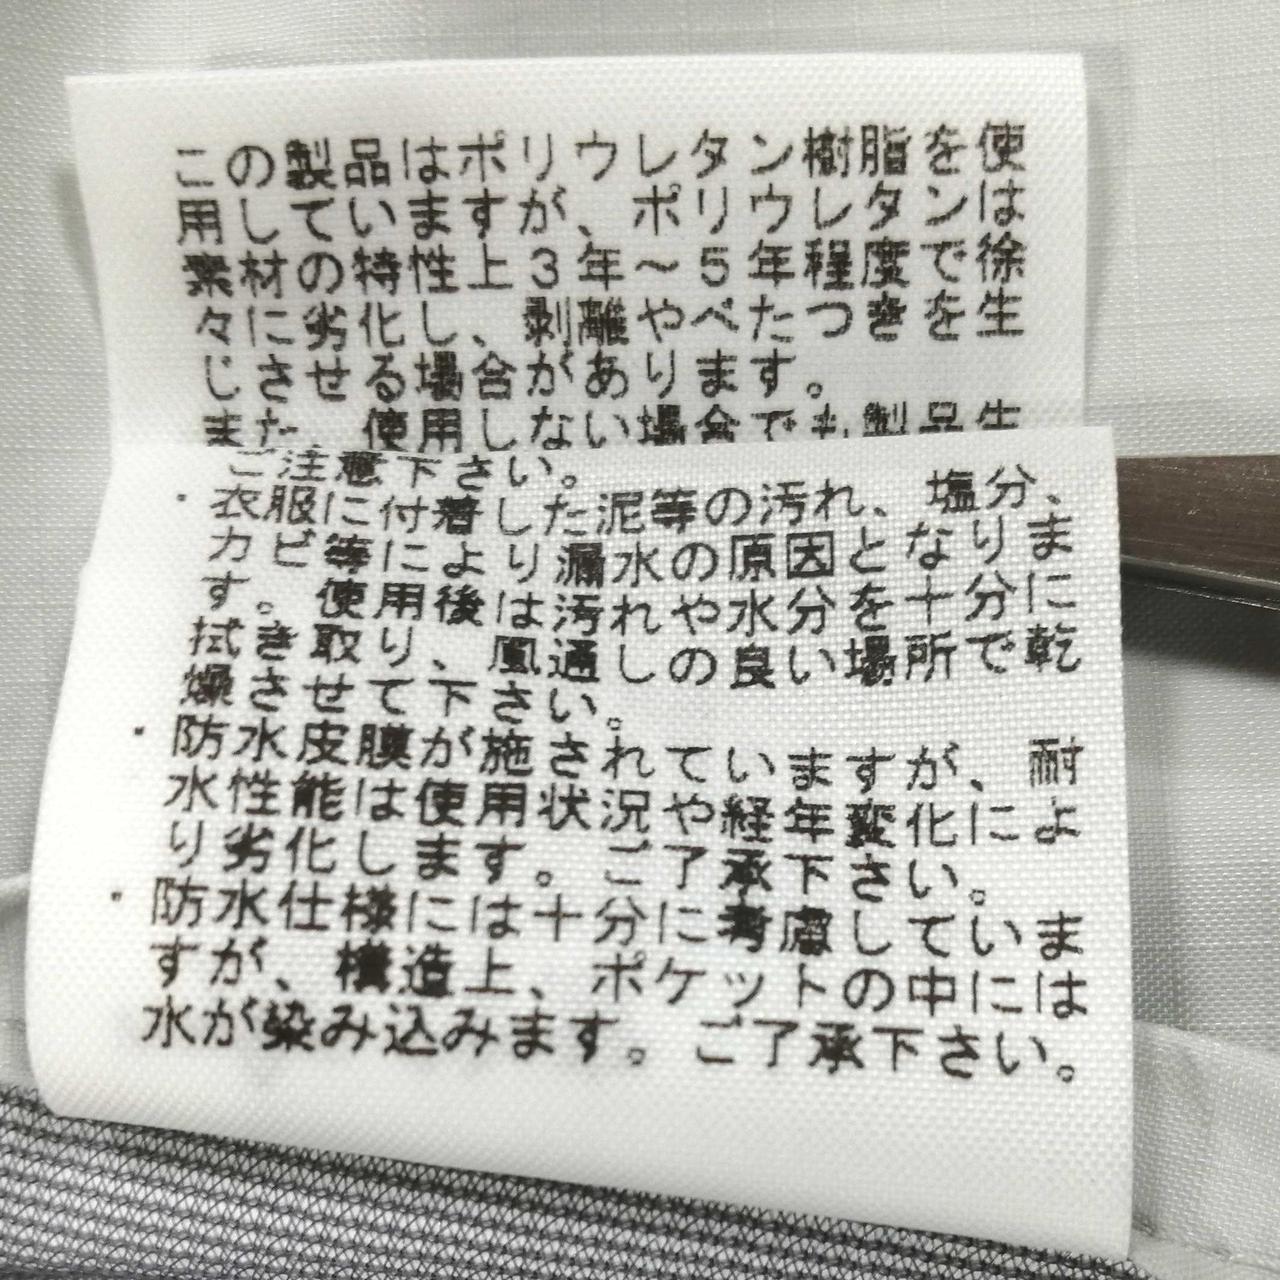 この製品はポリウレタン樹脂を使
用していますが、ポリウレタンは
素材の特性上3年～5年程度で徐
々に劣化し、剥離やべたつきを生
じさせる場合があります。
また、使用しない場合でも製品生
ご注意下さい。
・衣服に付着した泥等の汚れ、塩分、
カビ等により漏水の原因となりま
す。使用後は汚れや水分を十分に
拭き取り、風通しの良い場所で乾
燥させて下さい。
・防水皮膜が施されていますが、耐
水性能は使用状況や経年変化によ
り劣化します。ご了承下さい。
・防水仕様には十分に考慮していま
すが、構造上、ポケットの中には
水が染み込みます。ご了承下さい。